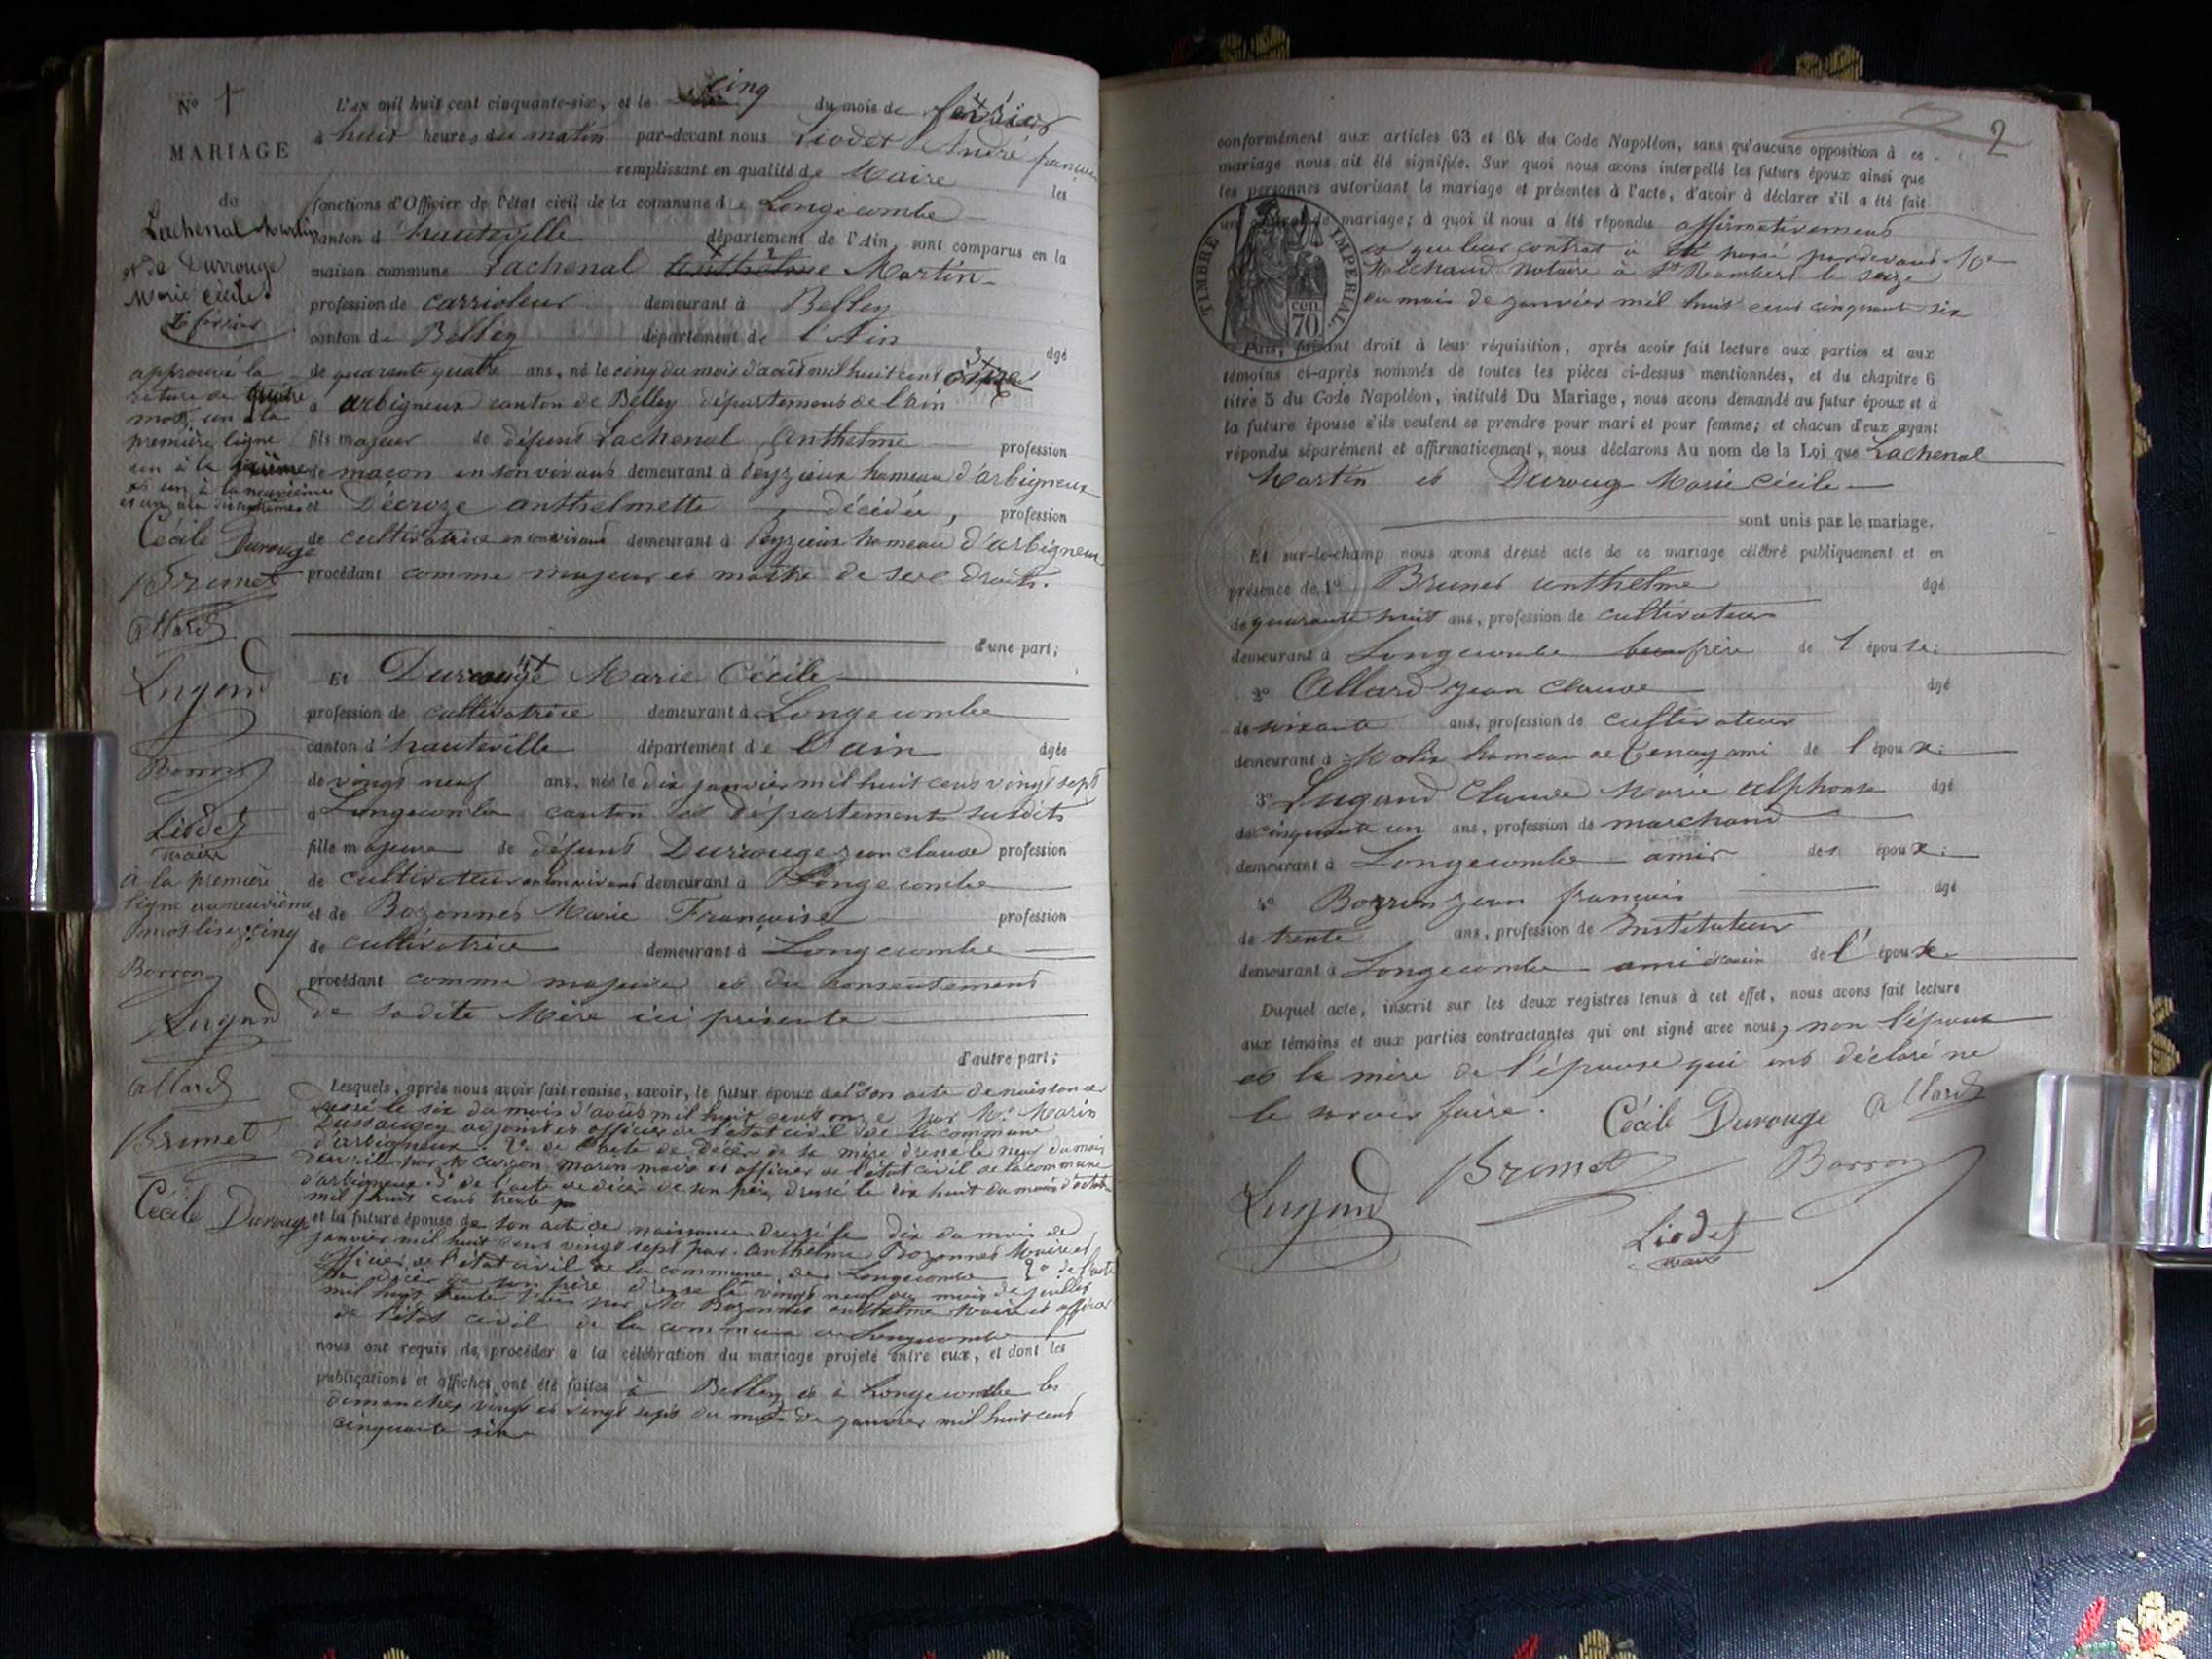 No 1
MARIAGE
de
Lachenal Martin
et de Durrouge
Marie Cécile
février
approuvé la
rature de quatre
mots, un à la
première ligne
un à la
et un à la neuvième
et un à la
Cécile Durouge
Brunet
Allard
Lugand
Borron
Liodet
maire
à la première
ligne au neuvième
mot lisez: cinq
Borron
Lugand
Allard
Brunet
Cécile Durouge
L'an mil huit cent cinquante-six, et le cinq du mois de février
à huit heures du matin par-devant nous Liodet André françois
remplissant en qualité de Maire les
fonctions d'Officier de l'état civil de la commune de Longecombe
canton d'hauteville département de l'Ain, sont comparus en la
maison commune Lachenal Anthelme Martin
profession de carrioleur demeurant à Belley
canton de Belley département de l'Ain âgé
de quarante quatre ans, né le cinq du mois d'août mil huit cent onze
à arbigneux canton de Belley département de l'ain
fils majeur de défunt Lachenal Anthelme profession
de maçon en son vivant demeurant à Peyzieux hameau d'arbigneux
et Décroze anthelmette décédée, profession
de cultivatrice en son vivant demeurant à Peyzieux hameau d'arbigneux
procédant comme majeur et maître de ses droits.
d'une part;
Et Durrouge Marie Cécile
profession de cultivatrice demeurant à Longecombe
canton d'hauteville département de l'ain âgée
de vingt neuf ans, née le dix janvier mil huit cent vingt sept
à Longecombe canton et département susdits
fille majeure de défunt Durrouge jean claude profession
de cultivateur en son vivant demeurant à Longecombe
et de Bozonnet Marie Françoise profession
de cultivatrice demeurant à Longecombe
procédant comme majeure et du consentement
de sadite Mère ici présente
d'autre part;
Lesquels, après nous avoir fait remise, savoir, le futur époux de 1° son acte de naissance
dressé le six du mois d'août mil huit cent onze par Mr Marin
Dussaugey adjoint et officier de l'état civil de la commune
d'arbigneux. 2° de l'acte de décès de sa mère dressé le neuf du mois
d'avril par Mr marin maire et officier de l'état civil de la commune
d'arbigneux. 3° de l'acte de décès de son père dressé le dix huit du mois d'octobre
mil huit cent trente
et la future épouse de son acte de naissance dressé le dix du mois de
janvier mil huit cent vingt sept par anthelme Bozonnet Maire et
officier de l'état civil de la commune de Longecombe 2° de l'acte
de décès de son père dressé le vingt neuf du mois de juillet
mil huit trente par Mr Bozonnet anthelme Maire et officier
de l'état civil de la commune de Longecombe
nous ont requis de procéder à la célébration du mariage projeté entre eux, et dont les
publications et affiches ont été faites à Belley et à Longecombe les
dimanches vingt et vingt sept du mois de janvier mil huit cent
cinquante six
2
conformément aux articles 63 et 64 du Code Napoléon, sans qu'aucune opposition à ce
mariage nous ait été signifiée. Sur quoi nous avons interpellé les futurs époux ainsi que
les personnes autorisant le mariage et présentes à l'acte, d'avoir à déclarer s'il a été fait
un de mariage; à quoi il nous a été répondu affirmativement
et que leur contrat a été passé pardevant Me
notaire à St Rambert le seize
du mois de janvier mil huit cent cinquante six
TIMBRE IMPÉRIAL
cen. 70
Puis, faisant droit à leur réquisition, après avoir fait lecture aux parties et aux
témoins ci-après nommés de toutes les pièces ci-dessus mentionnées, et du chapitre 6
titre 5 du Code Napoléon, intitulé Du Mariage, nous avons demandé au futur époux et à
la future épouse s'ils veulent se prendre pour mari et pour femme; et chacun d'eux ayant
répondu séparément et affirmativement, nous déclarons Au nom de la Loi que Lachenal
Martin et Duroug Marie Cécile
sont unis par le mariage.
Et sur-le-champ nous avons dressé acte de ce mariage célébré publiquement et en
présence de 1° Brunet anthelme âgé
de quarante huit ans, profession de cultivateur
demeurant à Longecombe beau frère de l'épouse;
2° Allard jean claude âgé
de soixante ans, profession de cultivateur
demeurant à Malix hameau de Tenay ami de l'époux;
3° Lugand Claude Marie alphonse âgé
de cinquante un ans, profession de marchand
demeurant à Longecombe ami des époux;
4° Borron jean françois âgé
de trente ans, profession de Instituteur
demeurant à Longecombe ami de l'époux.
Duquel acte, inscrit sur les deux registres tenus à cet effet, nous avons fait lecture
aux témoins et aux parties contractantes qui ont signé avec nous, non l'époux
et la mère de l'épouse qui ont déclaré ne
le savoir faire.
Cécile Durouge Allard
Lugand Brunet Borron
Liodet
maire